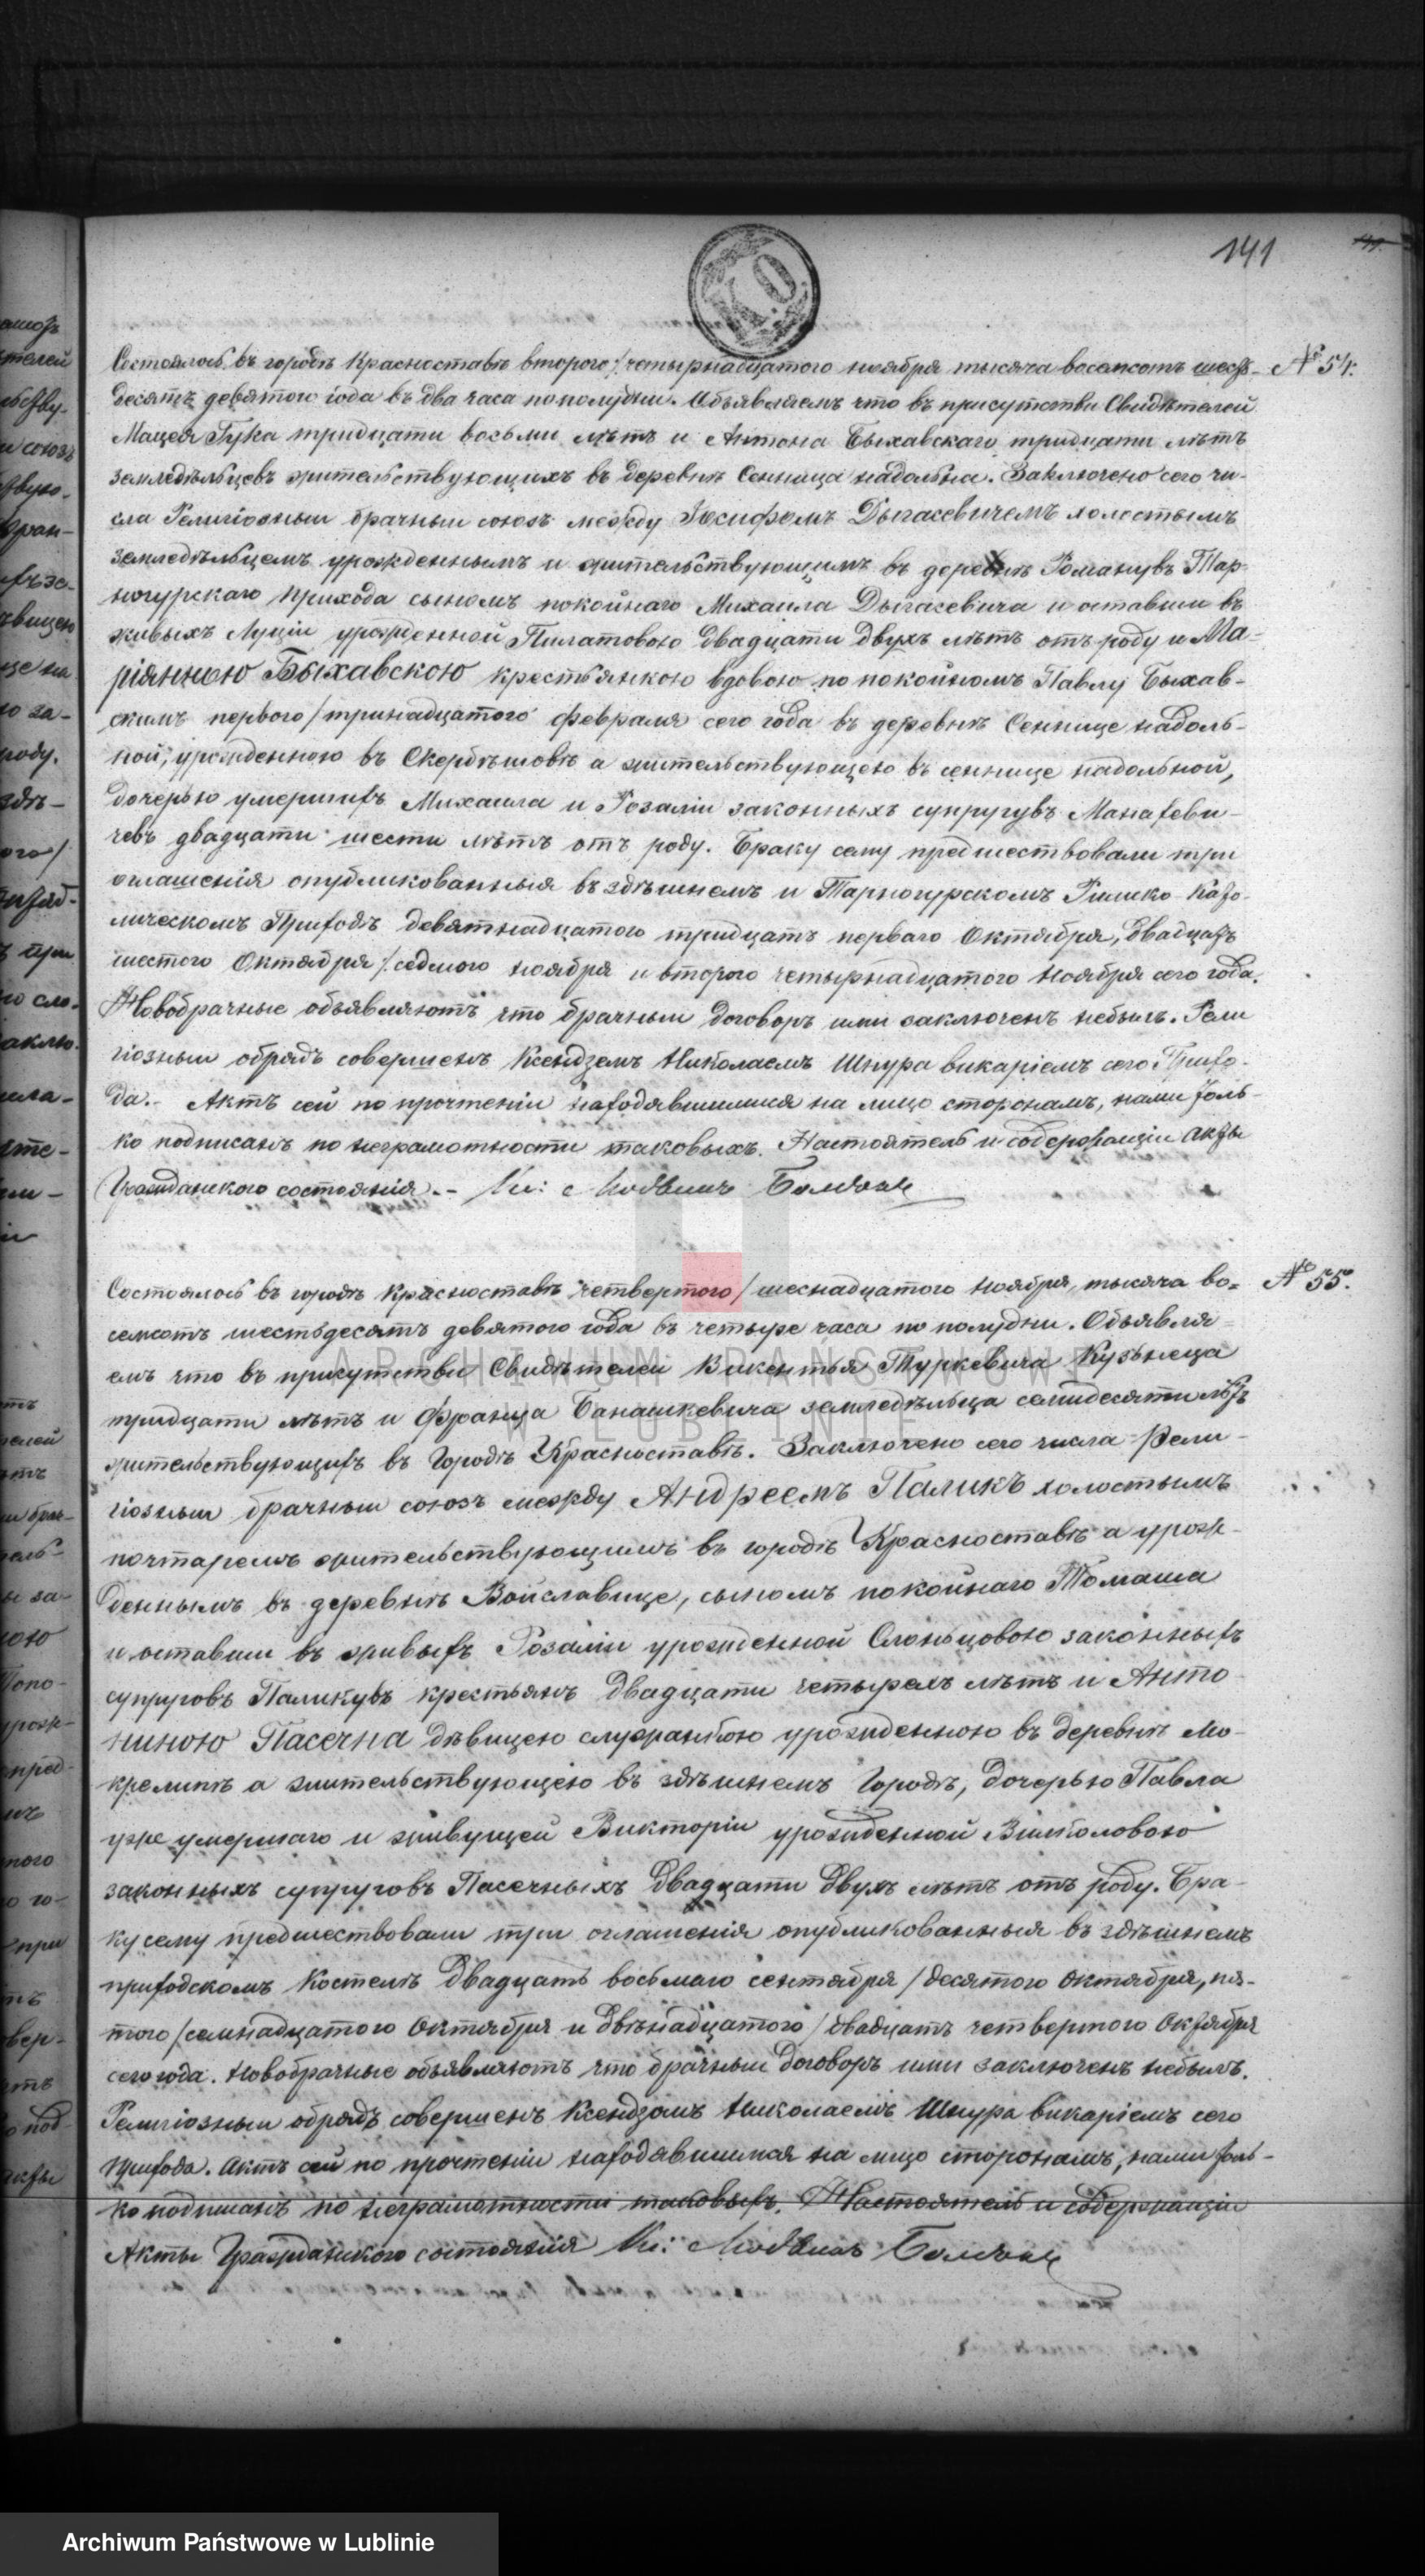 141
КО
Состоялось въ городѣ Красноставѣ втораго/четырнадцатого ноября тысяча восемсотъ шесть- № 54.
десятъ девятого года въ два часа пополудни. Объявляемъ что въ присутствіи Свидѣтелей
Мацея Гука тридцати восьми лѣтъ и Антона Быхавскаго тридцати лѣтъ
земледѣльцевъ жительствующихъ въ деревнѣ Сенница надольна. Заключено сего чи-
сла Религіозный брачный союзъ между Іосифомъ Дыгасевичемъ холостымъ
земледѣльцемъ урожденнымъ и жительствующимъ въ деревнѣ Романувъ Тар-
ногурскаго прихода сыномъ покойнаго Михаила Дыгасевича и оставшей въ
живыхъ Луціи урожденной Пилатовою двадцати двухъ лѣтъ отъ роду и Ма-
ріянною Быхавскою крестьянкою вдовою по покойномъ Павлу Быхав-
скимъ первого/тринадцатого февраля сего года въ деревнѣ Сеннице надоль-
ной, урожденною въ Скербѣшовѣ а жительствующею въ сеннице надольной,
дочерью умершихъ Михаила и Розаліи законныхъ супругувъ Манахеви-
чевъ двадцати шести лѣтъ отъ роду. Браку сему предшествовали три
оглашенія опубликованныя въ здѣшнемъ и Тарногурскомъ Римско Като-
лическомъ Приходѣ девятнадцатого тридцать первого Октября, двадцать
шестого Октября/седмого ноября и второго четырнадцатого Ноября сего года.
Новобрачные объявляютъ что брачный договоръ ими заключенъ небылъ. Рели
гіозный обрядъ совершенъ Ксендземъ Николаемъ Шпура викаріемъ сего Прихо-
да. Актъ сей по прочтеніи находявшимися на лицо сторонамъ, нами толь-
ко подписанъ по неграмотности таковыхъ. Настоятель и содержащій акты
Гражданского состоянія.-
Состоялось въ городѣ Красноставѣ четвертого/шеснадцатого Ноября, тысяча во- № 55.
семсотъ шестьдесятъ девятого года въ четыре часа по полудни. Объявля-
емъ что въ присутствіи Свидѣтелей Викентья Туркевича Кузьнеца
тридцати лѣтъ и Франца Банашкевича земледѣльца семидесяти лѣтъ
жительствующихъ въ Городѣ Красноставѣ. Заключено сего числа Рели-
гіозный брачный союзъ между Андреемъ Паликъ холостымъ
почтаремъ жительствующимъ въ городѣ Красноставѣ а урож-
деннымъ въ деревнѣ Войславице, сыномъ покойнаго Томаша
и оставшей въ живыхъ Розаліи урожденной Слоньцовою законныхъ
супруговъ Паликувъ крестьянъ двадцати четырехъ лѣтъ и Анто-
ниною Пасечна дѣвицею служанкою урожденною въ деревнѣ Мо-
крелипѣ а жительствующею въ здѣшнемъ Городѣ, дочерью Павла
уже умершаго и живущей Викторіи урожденной
законныхъ супруговъ Пасечныхъ двадцати двухъ лѣтъ отъ роду. Бра-
ку сему предшествовали три оглашенія опубликованныя въ здѣшнемъ
приходскомъ Костелѣ двадцать восьмаго сентября/десятого Октября, пя-
того/семнадцатого Октября и двѣнадцатого/двадцать четвертого Октября
сего года. Новобрачные объявляютъ что брачный договоръ ими заключенъ небылъ.
Религіозный обрядъ совершенъ Ксендзомъ Николаемъ Шпура викаріемъ сего
Прихода. Актъ сей по прочтеніи находявшимся на лицо сторонамъ, нами толь-
ко подписанъ по неграмотности таковыхъ. Настоятель и содержащій
Акты Гражданского состоянія
ARCHIWUM PAŃSTWOWE
W LUBLINIE
Archiwum Państwowe w Lublinie